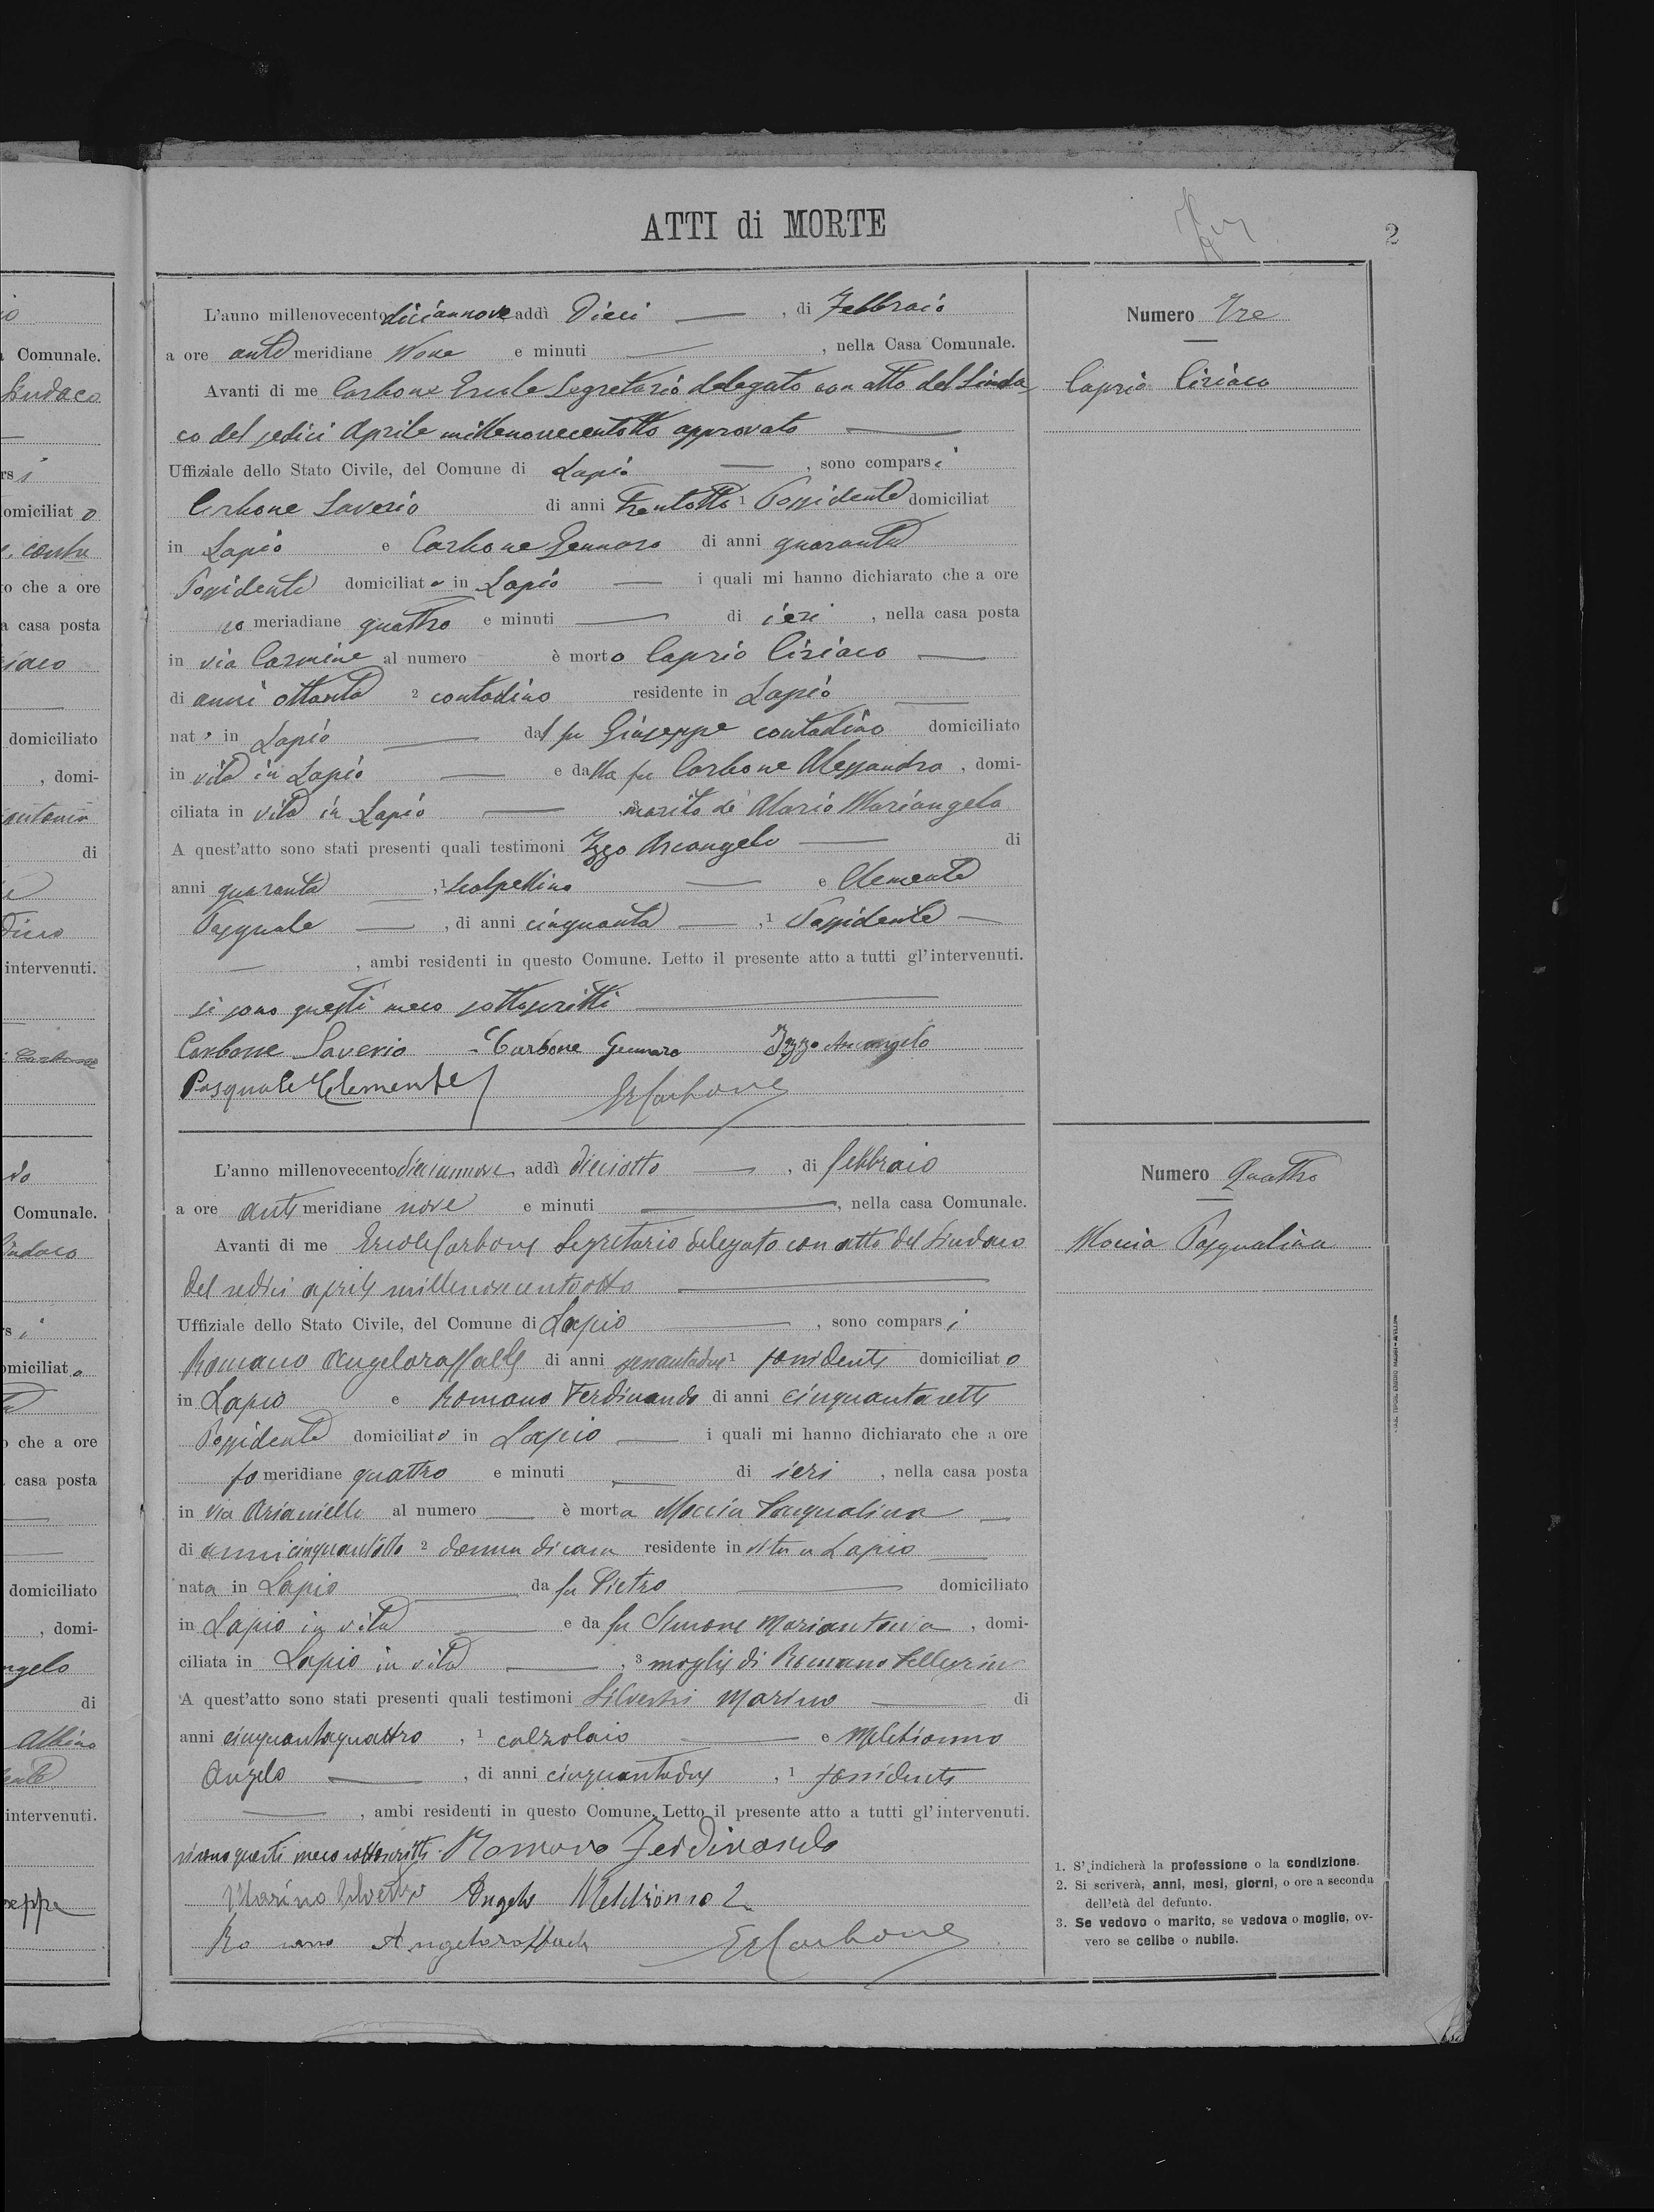 ATTI di MORTE
2
L'anno millenovecento diciannove addì Dieci , di Febbraio
a ore antimeridiane Nove e minuti , nella Casa Comunale.
Avanti di me Carbone Ercole Segretario delegato con atto del Sinda
co del sedici Aprile millenovecentotto approvato
Uffiziale dello Stato Civile, del Comune di Lapio , sono comparsi
Carbone Saverio di anni Trentotto 1 Possidente domiciliat
in Lapio e Carbone Gennaro di anni quaranta
Possidente domiciliato in Lapio i quali mi hanno dichiarato che a ore
meriadiane quattro e minuti di ieri , nella casa posta
in via Carmine al numero è morto Caprio Ciriaco
di anni ottanta 2 contadino residente in Lapio
nato in Lapio dal fu Giuseppe contadino domiciliato
in vita in Lapio e dalla fu Carbone Alessandra , domi-
ciliata in vita in Lapio marito di Alario Mariangela
A quest'atto sono stati presenti quali testimoni Izzo Arcangelo di
anni quaranta , 1 Scalpellino e Clemente
Pasquale , di anni cinquanta , 1 Possidente
, ambi residenti in questo Comune. Letto il presente atto a tutti gl'intervenuti.
si sono questi meco sottoscritti
Carbone Saverio Carbone Gennaro Izzo Arcangelo
Pasquale Clemente
ErCarbone
Numero Tre
Caprio Ciriaco
L'anno millenovecento diciannove addì dieciotto , di febbraio
a ore antimeridiane nove e minuti , nella casa Comunale.
Avanti di me Ercole Carbone Segretario delegato con atto del Sindaco
del sedici aprile millenovecentootto
Uffiziale dello Stato Civile, del Comune di Lapio , sono comparsi
Romano Angeloraffaele di anni sessantadue 1 possidente domiciliato
in Lapio e Romano Ferdinando di anni cinquantasette
Possidente domiciliato in Lapio i quali mi hanno dichiarato che a ore
pomeridiane quattro e minuti di ieri , nella casa posta
in via Arianiello al numero è morta Moccia Pasqualina
di anni cinquantotto 2 donna di casa residente in vita a Lapio
nata in Lapio da fu Pietro domiciliato
in Lapio in vita e da fu Simone Mariantonia , domi-
ciliata in Lapio in vita , 3 moglie di Romano Pellegrin
A quest'atto sono stati presenti quali testimoni Silvestri Marino di
anni cinquantaquattro , 1 calzolaio e Melchionno
Angelo , di anni cinquantadue , 1 possidente
, ambi residenti in questo Comune. Letto il presente atto a tutti gl'intervenuti.
si sono questi meco sottoscritti. Romano Ferdinando
Marino Silvestro Angelo Melchionno
Romano Angeloraffaele ErCarbone
Numero Quattro
Moccia Pasqualina
1. S'indicherà la professione o la condizione.
2. Si scriverà, anni, mesi, giorni, o ore a seconda
dell'età del defunto.
3. Se vedovo o marito, se vedova o moglie, ov-
vero se celibe o nubile.
Comunale.
Sindaco
domiciliato
che a ore
casa posta
domiciliato
, domi-
di
intervenuti.
Comunale.
Sindaco
che a ore
casa posta
domiciliato
, domi-
di
Albino
intervenuti.